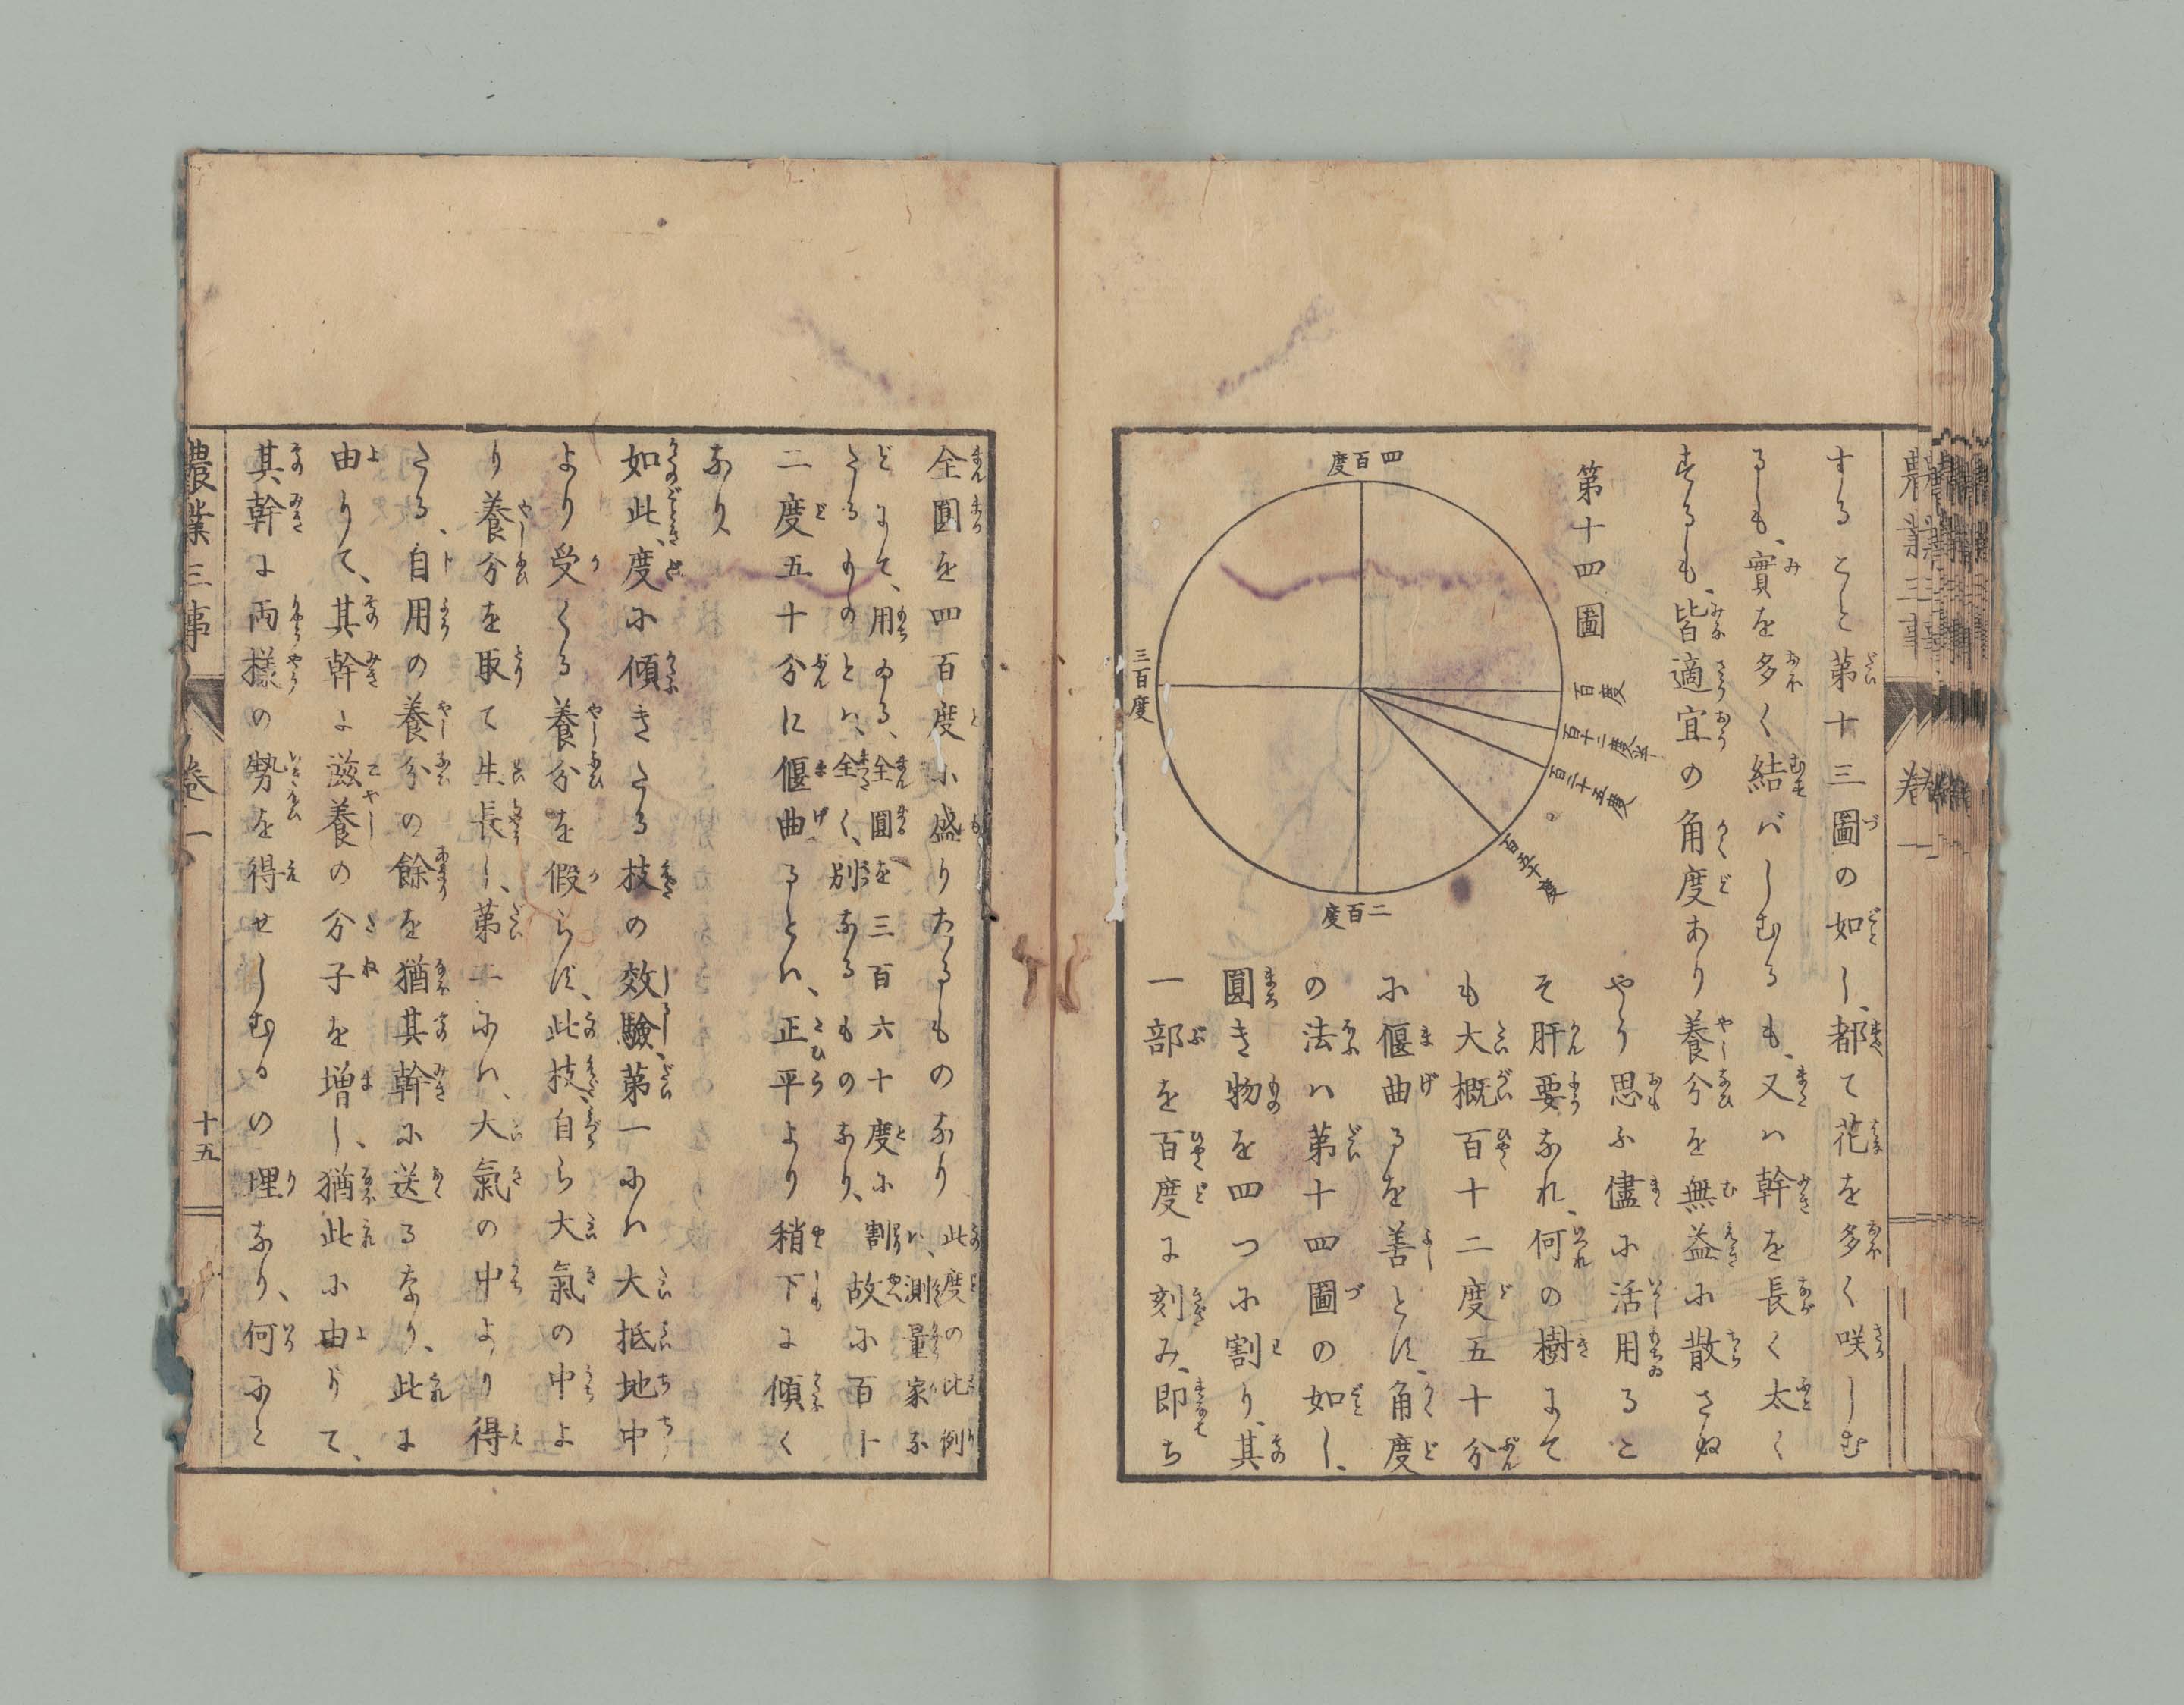 農業三事
巻一
することと第十三圖の如し、都て花を多く咲しむ
るも、實を多く結バしむるも、又ハ幹を長く太く
するも、皆適宜の角度あり養分を無益に散さぬ
やう思ふ儘に活用るこ
そ肝要なれ、何の樹にて
も大概百十二度五十分
に偃曲るを善とす、角度
の法ハ第十四圖の如し、
圓き物を四つに割り、其
一部を百度に刻み、即ち
第十四圖
四百度
百度
百十二度半
百二十五度
百五十度
二百度
三百度
全圓を四百度に盛りたるものなり此度の比例
ハ、測量家な
どにて、用ゐる、全圓を三百六十度に割
たるものとハ、全く、別なるものなり、故に百十
二度五十分に偃曲るとハ、正平より稍下に傾く
なり
如此、度に傾きたる技の效驗、第一にハ大抵地中
より受くる養分を假らず、此技、自ら大氣の中よ
り養分を取て生長し、第二にハ、大氣の中より得
たる、自用の養分の餘を猶其幹に送るなり、此に
由りて、其幹に滋養の分子を増し、猶此に由りて、
其幹に両樣の勢を得せしむるの理なり、何にと
農業三事
巻一
十五